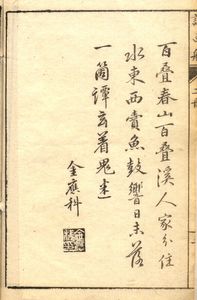 百疊春山百疊溪人家分住
水東西賣魚鼓響日未落
一箇譚玄着鬼迷
金應科